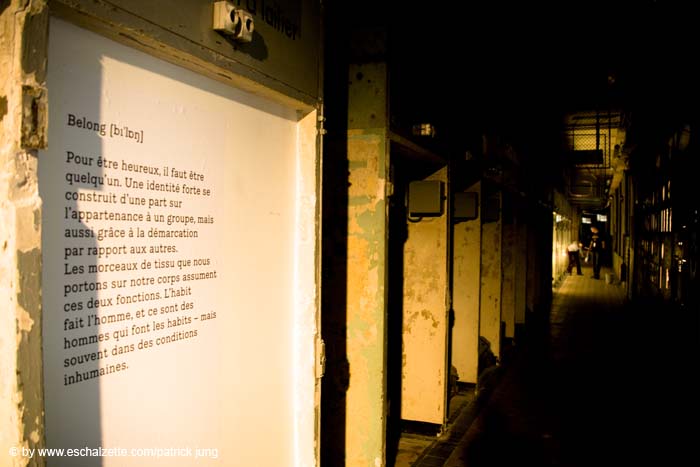 d'à lainer
Belong [bɪ'lɒŋ]
Pour être heureux, il faut être
quelqu'un. Une identité forte se
construit d'une part sur
l'appartenance à un groupe, mais
aussi grâce à la démarcation
par rapport aux autres.
Les morceaux de tissu que nous
portons sur notre corps assument
ces deux fonctions. L'habit
fait l'homme, et ce sont des
hommes qui font les habits – mais
souvent dans des conditions
inhumaines.
© by www.eschalzette.com/patrick jung